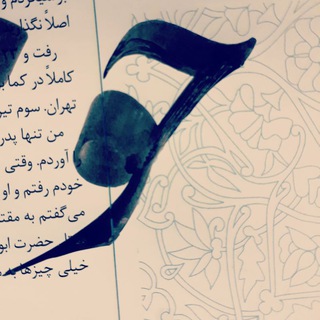 اصلاً نگذا
رفت و
کاملاً در کما
تهران. سوم تیر
من تنها پدر
آوردم. وقتی
خودم رفتم و او
می‌گفتم به مقت
حضرت ابو
خیلی چیزها